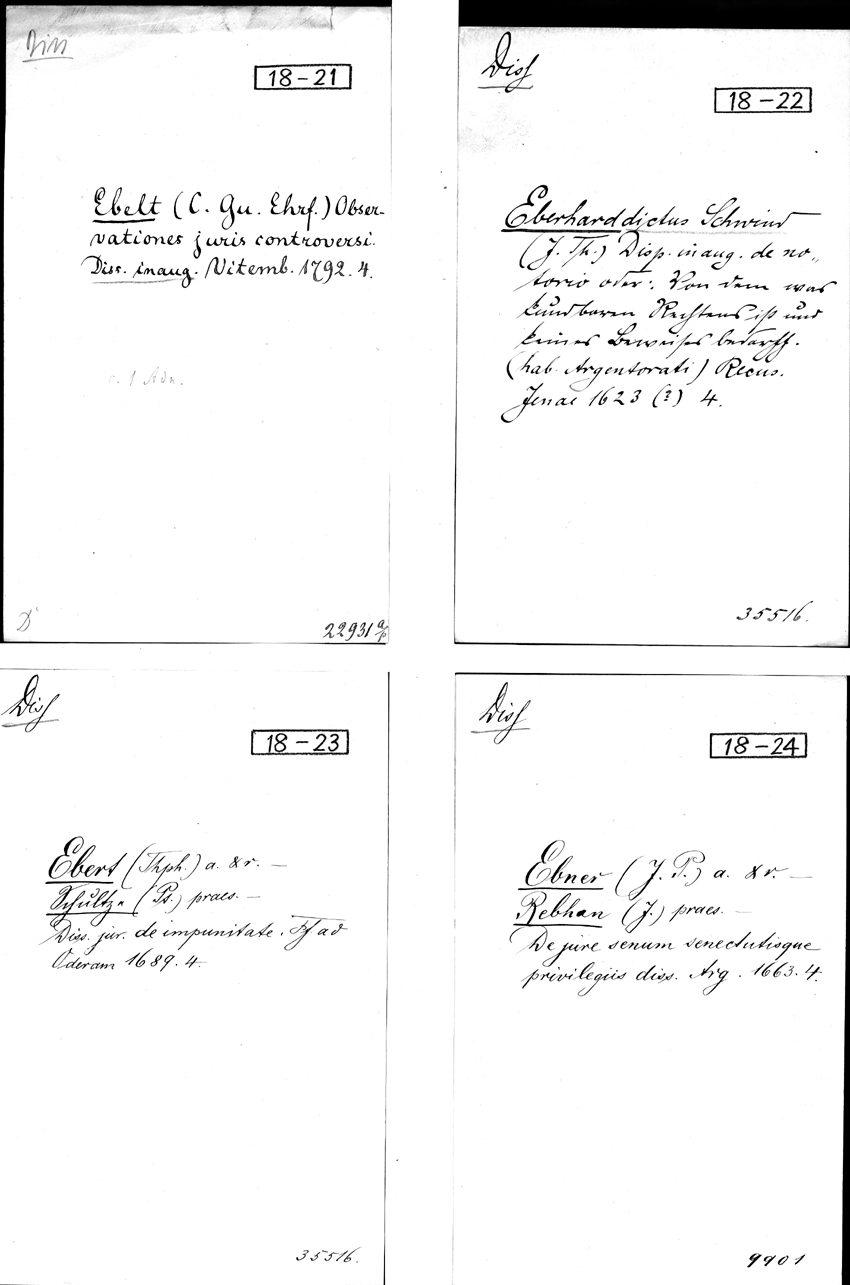 Diss
18-21
Ebelt (C. Gu. Ehrf.) Obser-
vationes juris controversi.
Diss. inaug. Vitemb. 1792. 4.
c. 1 Adn.
D
22931 a/p
Diss
18-22
Eberhard dictus Schwind
(J. Th.) Disp. inaug. de no„
torio oder: Von dem was
kundbaren Rechtens ist und
keines Beweises bedarff.
(hab. Argentorati) Recus.
Jenae 1623 (?) 4.
35516.
Diss
18-23
Ebert (Thph.) a. & r. —
Schultze (Pt.) praes. —
Diss. jur. de impunitate. Ff ad
Oderam 1689. 4.
35516.
Diss
18-24
Ebner (J. P.) a. & r. —
Rebhan (J.) praes. —
De jure senum senectutisque
privilegiis diss. Arg. 1663. 4.
9901